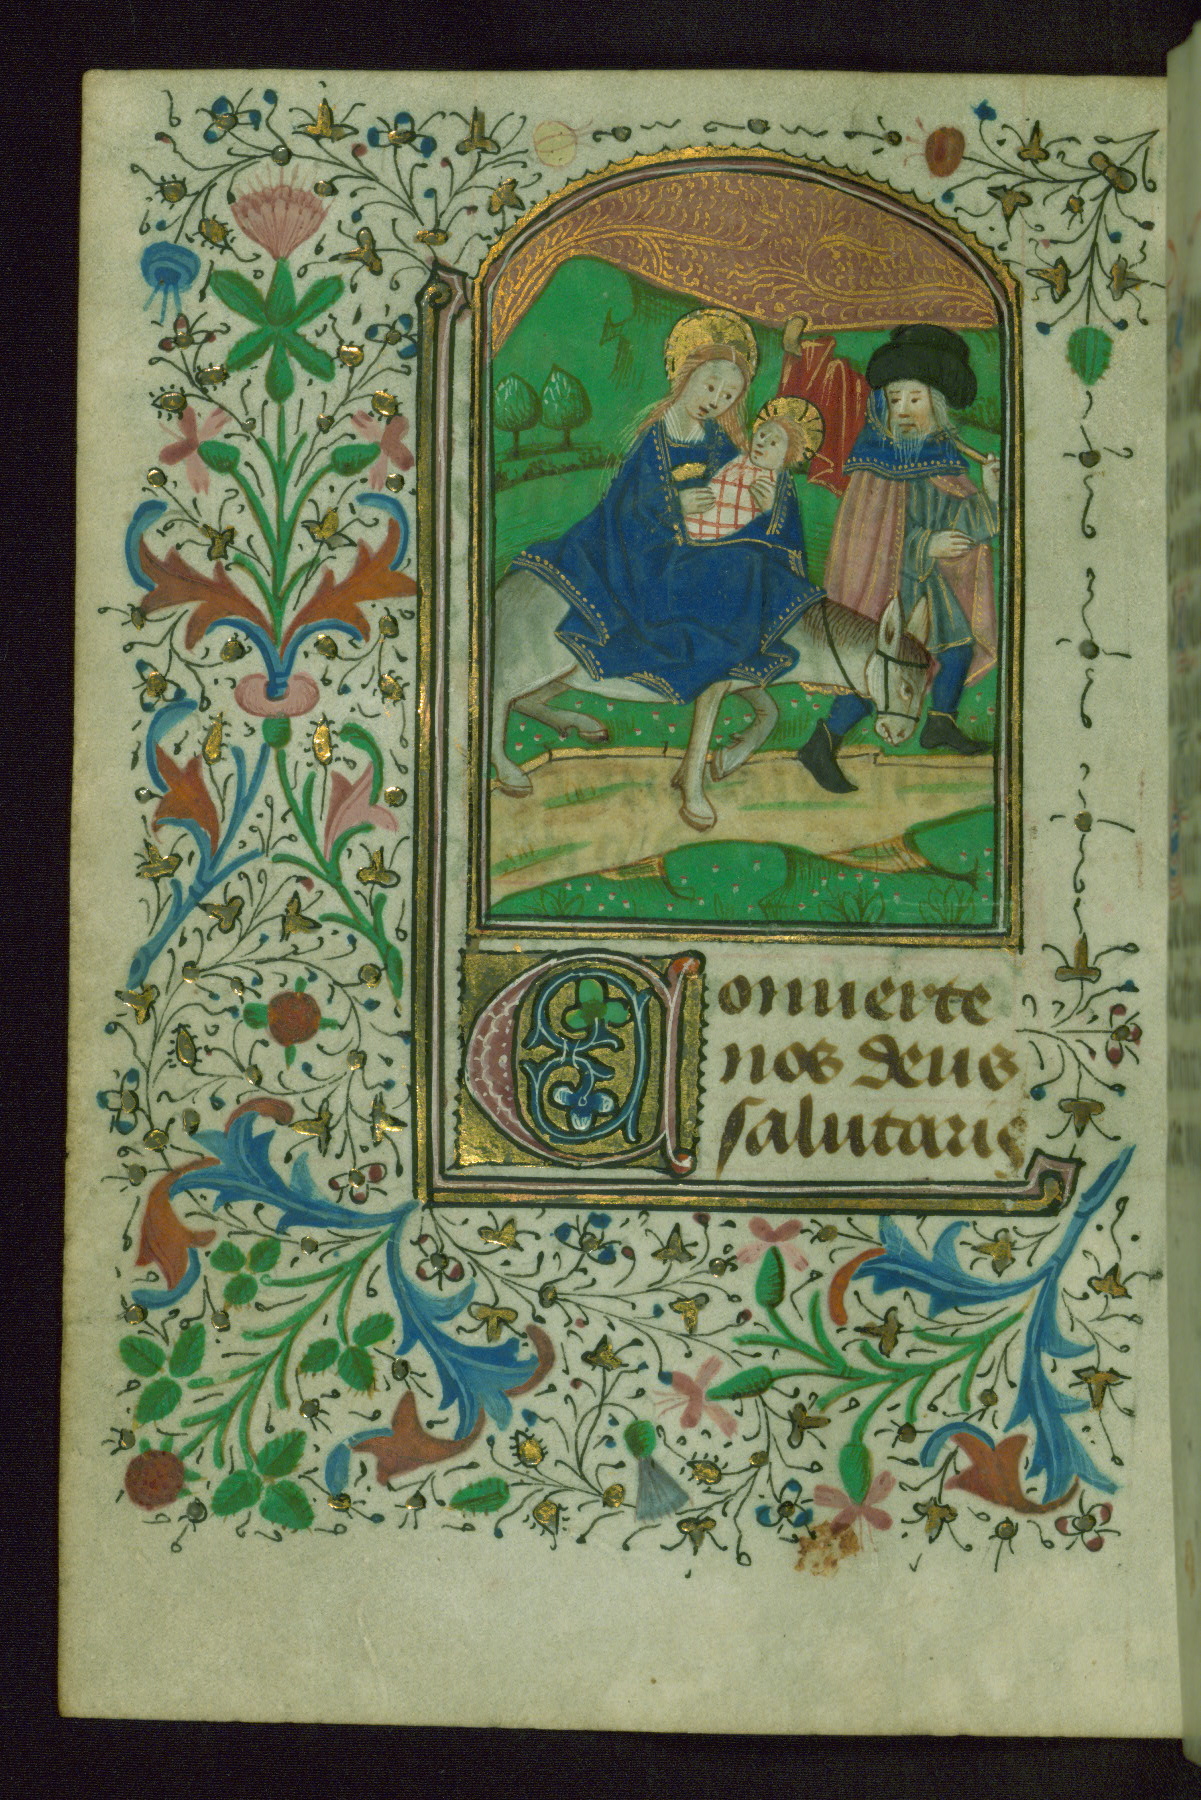 Conuerte
nos deus
salutaris